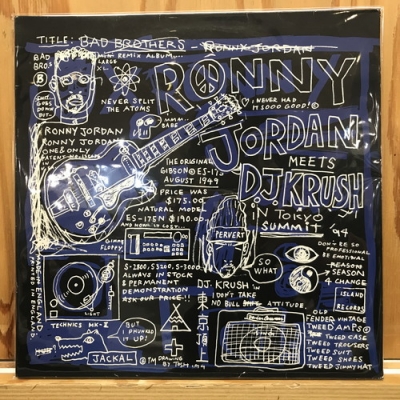 TITLE: BAD BROTHERS - RONNY JORDAN
BAD
BRO.
REMIX ALBUM....
B
LARGE
XL
NEVER SPLIT
THE ATOMS
RONNY
I NEVER HAD
IT SOOO GOOD!
JORDAN
MEETS
D.J. KRUSH
IN TOKYO
SUMMIT '94
RONNY JORDAN
RONNY JORDAN
ONE & ONLY
THE ORIGINAL
GIBSON ES-175
AUGUST 1949
PRICE WAS
$175.00
NATURAL MODEL
ES-175N $190.00
AND NOW IS LOST
GIMME
FLOPPY
PERVERT
SO
WHAT
DON'T BE SO
PROFESSIONAL
BE EMOTIONAL
REASON
SEASON
4 CHANGE
ISLAND
RECORDS
MADE IN ENGLAND
S-2800, S3200, S-3000.
ALWAYS IN STOCK
& PERMANENT
DEMONSTRATION
ASK OUR PRICE!!
D.J. KRUSH IN
I DON'T TAKE
NO BULL ATTITUDE.
東京頂上
LIGHT
TECHNICS MK-II
BUT
I PHONED
IT UP!
JACKAL
DRAWING
OLD
FENDER VINTAGE
TWEED AMPS
TWEED CASE
TWEED TROUSERS
TWEED SUIT
TWEED SHOES
TWEED JIMMY HAT